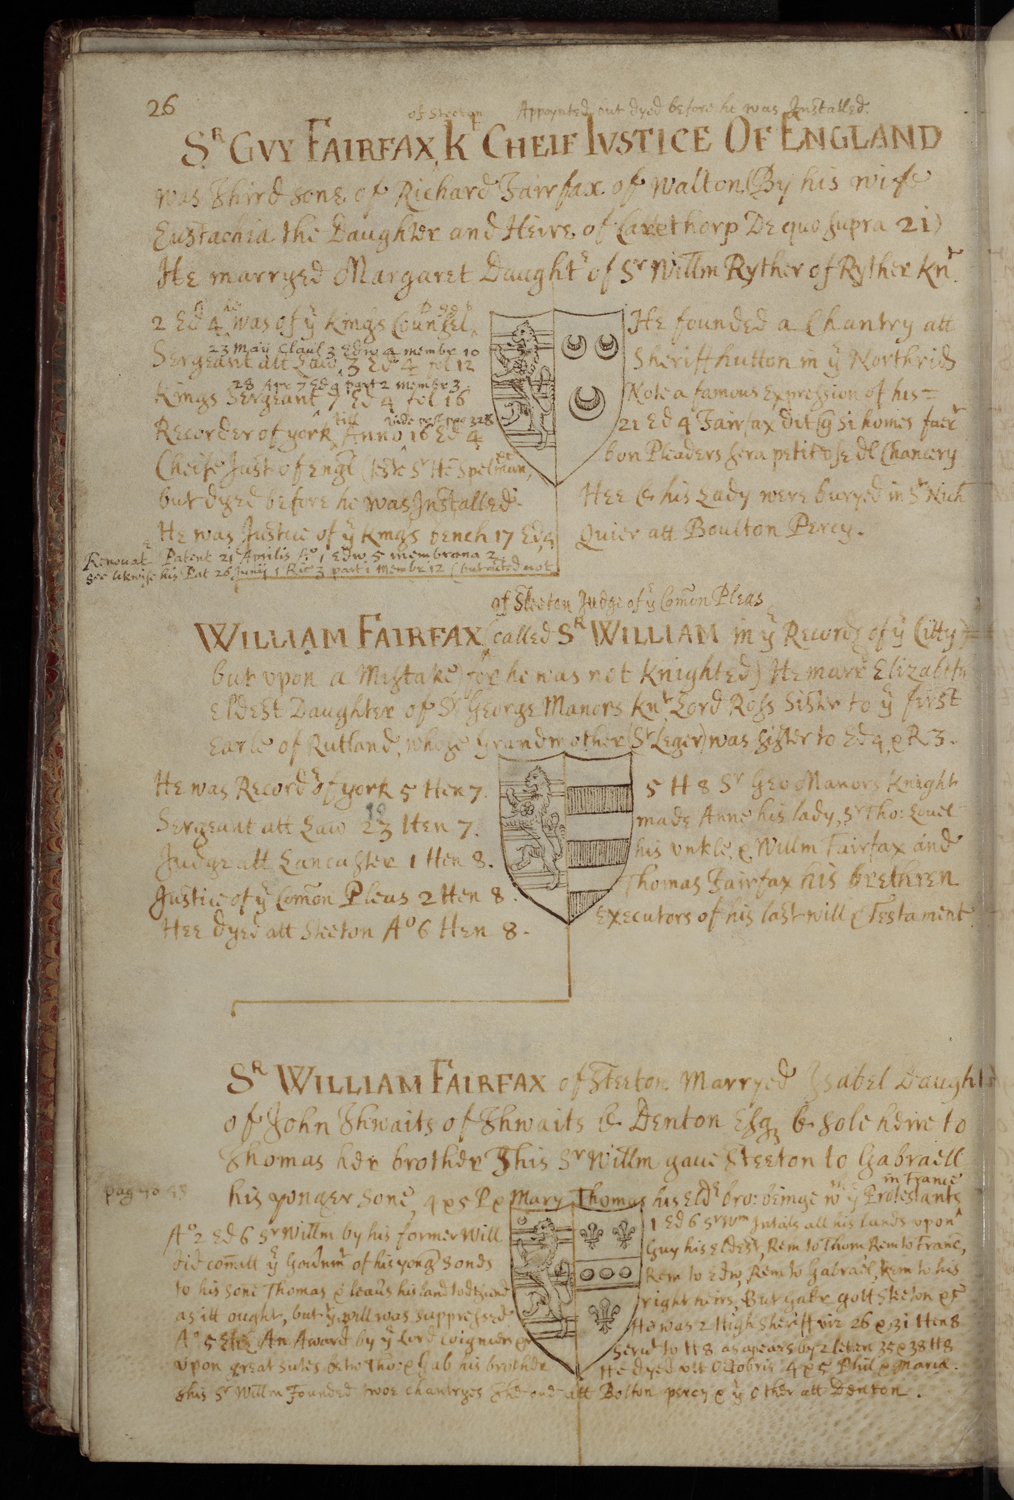 26
of Steeton Appoynted but dyed before he was Installed
Sr GVY FAIRFAX Kt CHEIF IVSTICE OF ENGLAND
was Third sone of Richard Fairfax of Walton (By his wife
Eustachia the Daughter and Heire of Carethorp De quo supra 21)
He marryed Margaret Daughtr of Sr Willm Ryther of Ryther Knt
2 Ed 4 was of ye Kings Counsel
23 May Claus 3 Edw 4 membr 10
Sergeant att Law 3 Ed 4 fol 12
28 Apr 7 Ed 4 part 2 membr 3
Kings Sergeant 7 Ed 4 fol 16
Recorder of york Anno 16 Ed 4
Cheife Just of Engl (teste Sr He Spelman,
but dyed before he was Installed
He was Justice of ye Kings bench 17 Ed 4
Renouat Patent 21 Aprilis Ao 1 Edw 5 membrana 2
see likewise his Pat 26 Junij 1 Ric 3 part 1 membr 12 (but acted not
He founded a Chantry att
Sheriffhutton in ye Northrid
Note a famous Expression of his=
21 Ed 4 Fairfax dit Si homes fuer
bon Pleaders sera petit ose del Chancery
HEE & his Lady were buryed in St Nich
Quier att Boulton Percy.
of Steeton Judge of ye Comon Pleas
WILLIAM FAIRFAX (called Sr WILLIAM in ye Records of ye Citty)
but upon a Mistake for he was not Knighted) He marr Elizabeth
Eldest Daughter of Sr George Manors Knt Lord Ross Sister to ye first
Earle of Rutland, whose Grandmother (St Leger) was sister to Ed 4 & R 3.
He was Recordr of york 5 Hen 7.
Sergeant att Law 23 Hen 7.
Judge att Lancaster 1 Hen 8.
Justice of ye Comon Pleas 2 Hen 8.
HEE dyed att Steeton Ao 6 Hen 8.
5 H 8 Sr Geo Manors Knight
made Anne his lady, Sr Tho: Lovel
his vnkle, & Willm Fairfax and
Thomas Fairfax his brethren
Executors of his last will & Testament
Sr WILLIAM FAIRFAX of Steeton Marryed Isabel Daught
of John Thwaits of Thwaits & Denton Esq & sole heire to
Thomas her brother This Sr Willm gaue Steeton to Gabraell
pag 40
his yonger sone, 4 & 5 P & Mary Thomas his Eldt bro: beinge wth ye Protestants
in France
Ao 2 Ed 6 Sr Willm by his former Will
did comitt ye Gouernmt of his yong Sonds
to his sone Thomas & leaues his land to dessend
as itt ought, but ye will was suppressed
Ao 5 Eliz An Award by ye Lord
vpon great sutes Tho & Gab his brother
1 Ed 6 Sr Wm Intails all his lands vpon
Guy his Eldest, Rem to Thom, Rem to Franc,
Rem to Edw, Rem to Gabrael, Rem to his
right heirs, But Gabr gott Steeton &c
He was 2 High Sheriff viz 26 & 31 Hen 8
Seru to H 8 as apears by 2 leters 35 & 38 H 8
He dyed vlt Octobris 4 & 5 Phil & Maria.
This Sr Willm Founded twoe Chantryes The one att Bolton percy & ye other att Denton.